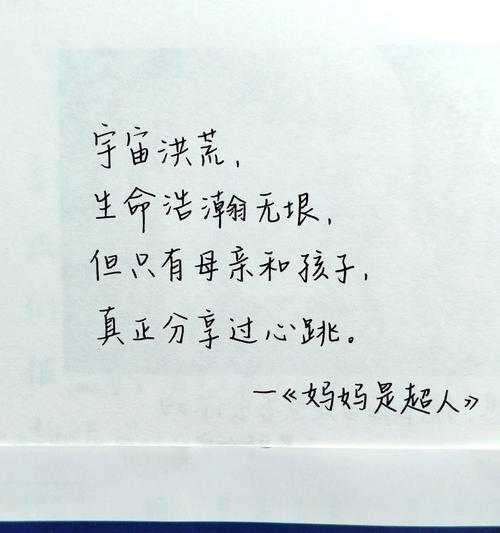 宇宙洪荒，
生命浩瀚无垠，
但只有母亲和孩子，
真正分享过心跳。
—《妈妈是超人》